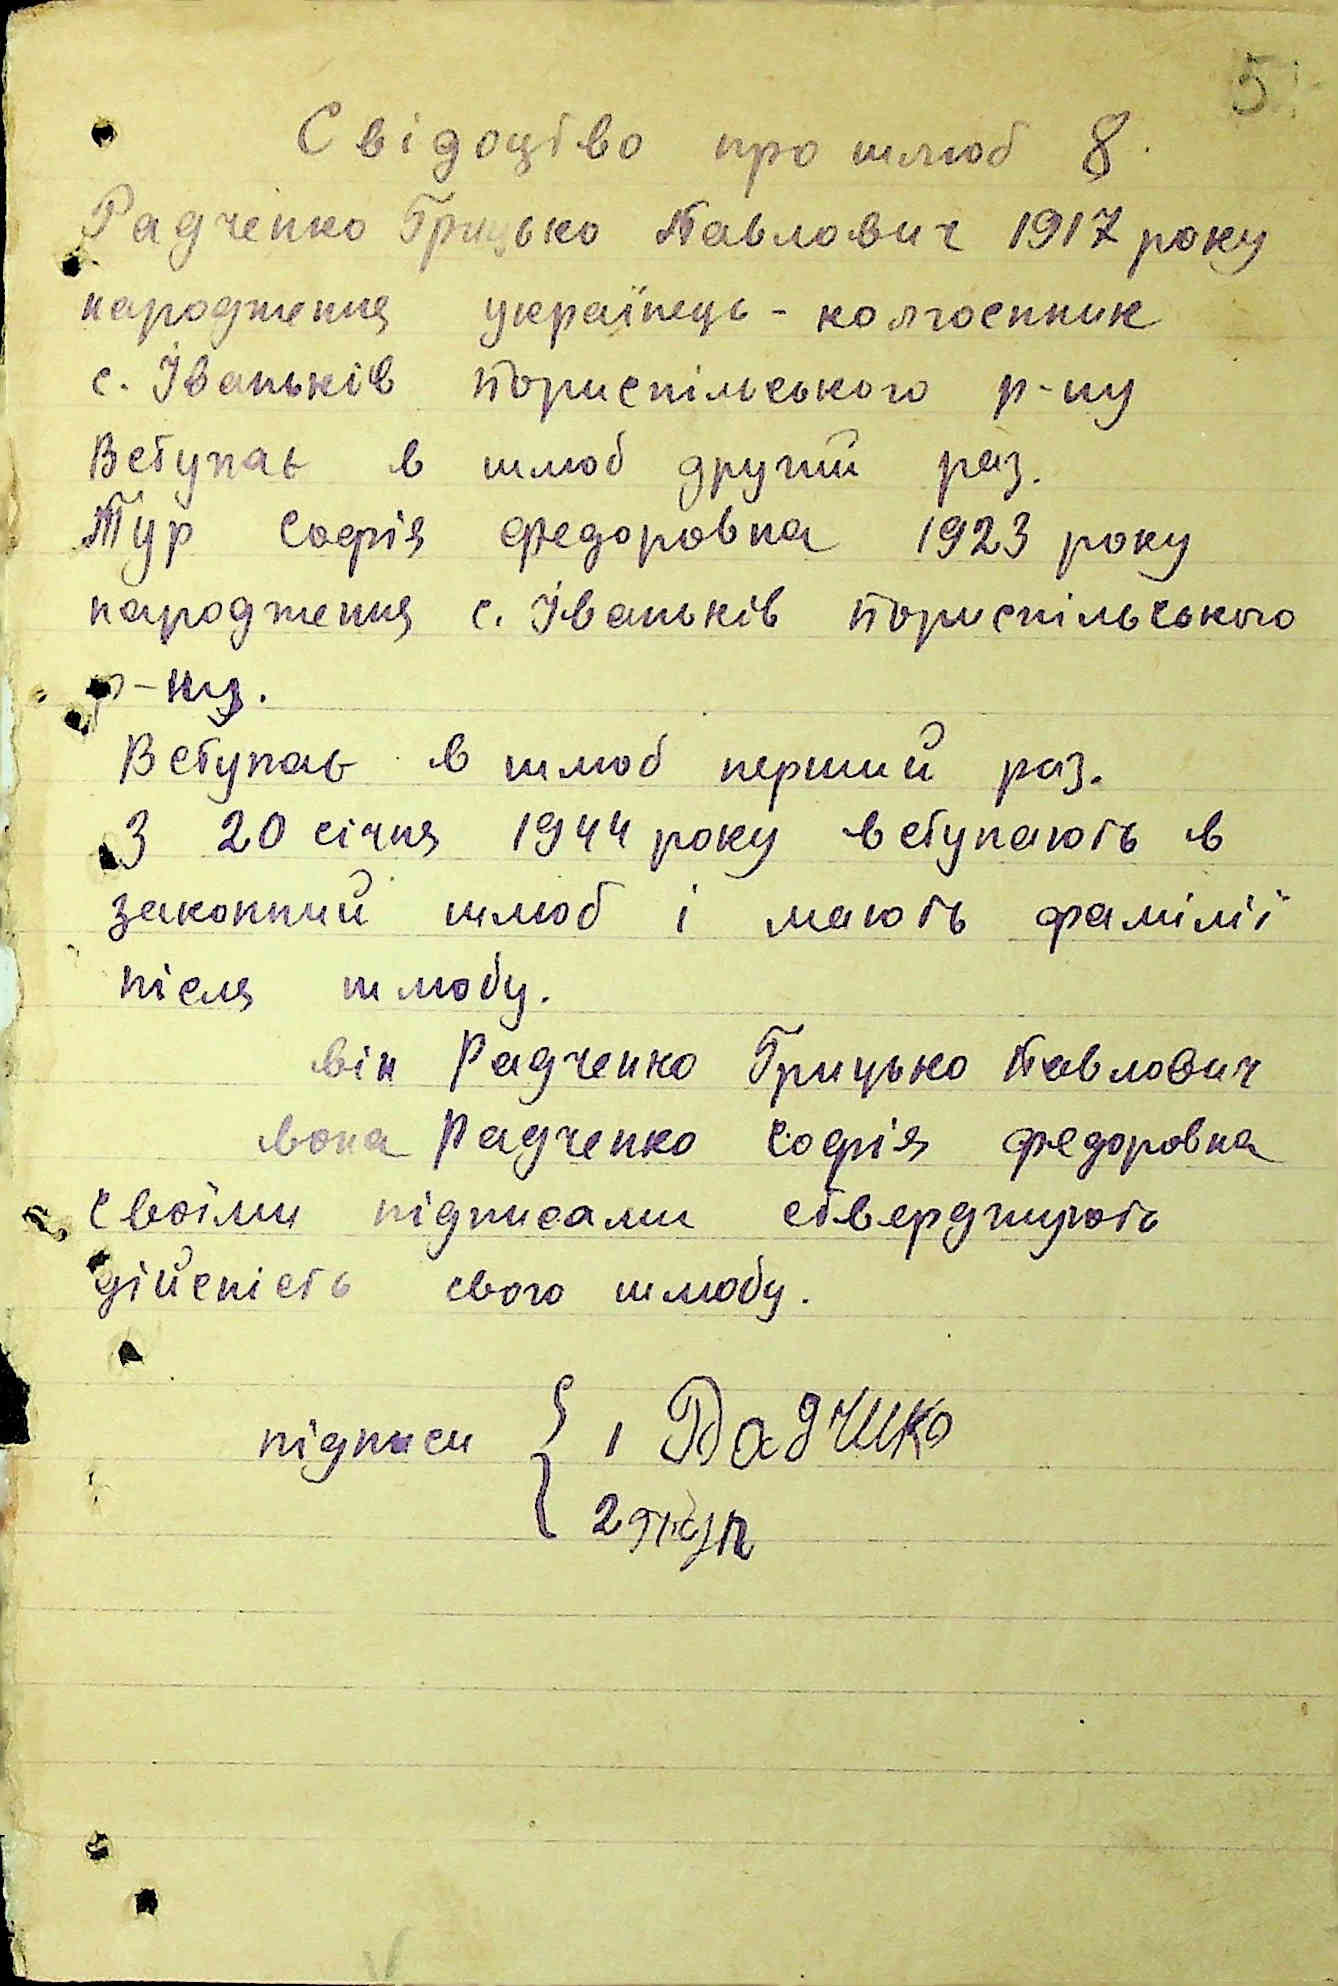 5
Свідоцтво про шлюб 8.
Радченко Грицько Павлович 1917 року
народження українець - колгоспник
с. Іваньків Бориспільського р-ну
Вступає в шлюб другий раз.
Тур Софія Федоровна 1923 року
народження с. Іваньків Бориспільського
р-ну.
Вступає в шлюб перший раз.
З 20 січня 1944 року вступають в
законний шлюб і мають фамілії
після шлюбу.
він Радченко Грицько Павлович
вона Радченко Софія Федоровна
своїми підписами стверджують
дійсність свого шлюбу.
підписи { 1 Радчико
2 тур